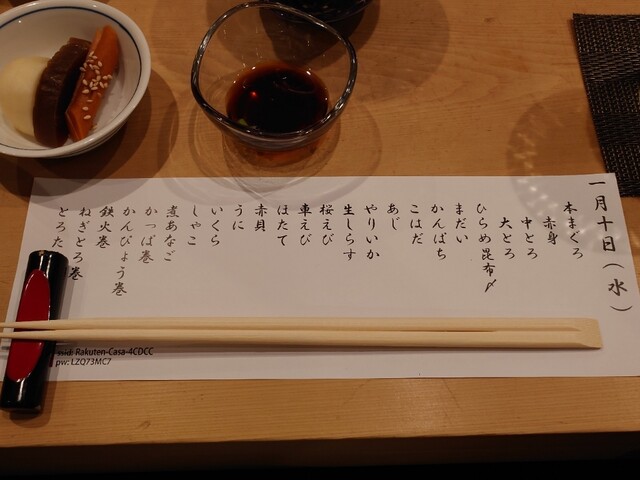 一月十日(水)
本まぐろ
赤身
中とろ
大とろ
ひらめ昆布〆
まだい
かんぱち
こはだ
あじ
やりいか
生しらす
桜えび
車えび
ほたて
赤貝
うに
いくら
しゃこ
煮あなご
かっぱ巻
かんぴょう巻
鉄火巻
ねぎとろ巻
とろた
ssid: Rakuten-Casa-4CDCC
pw: LZQ73MC7